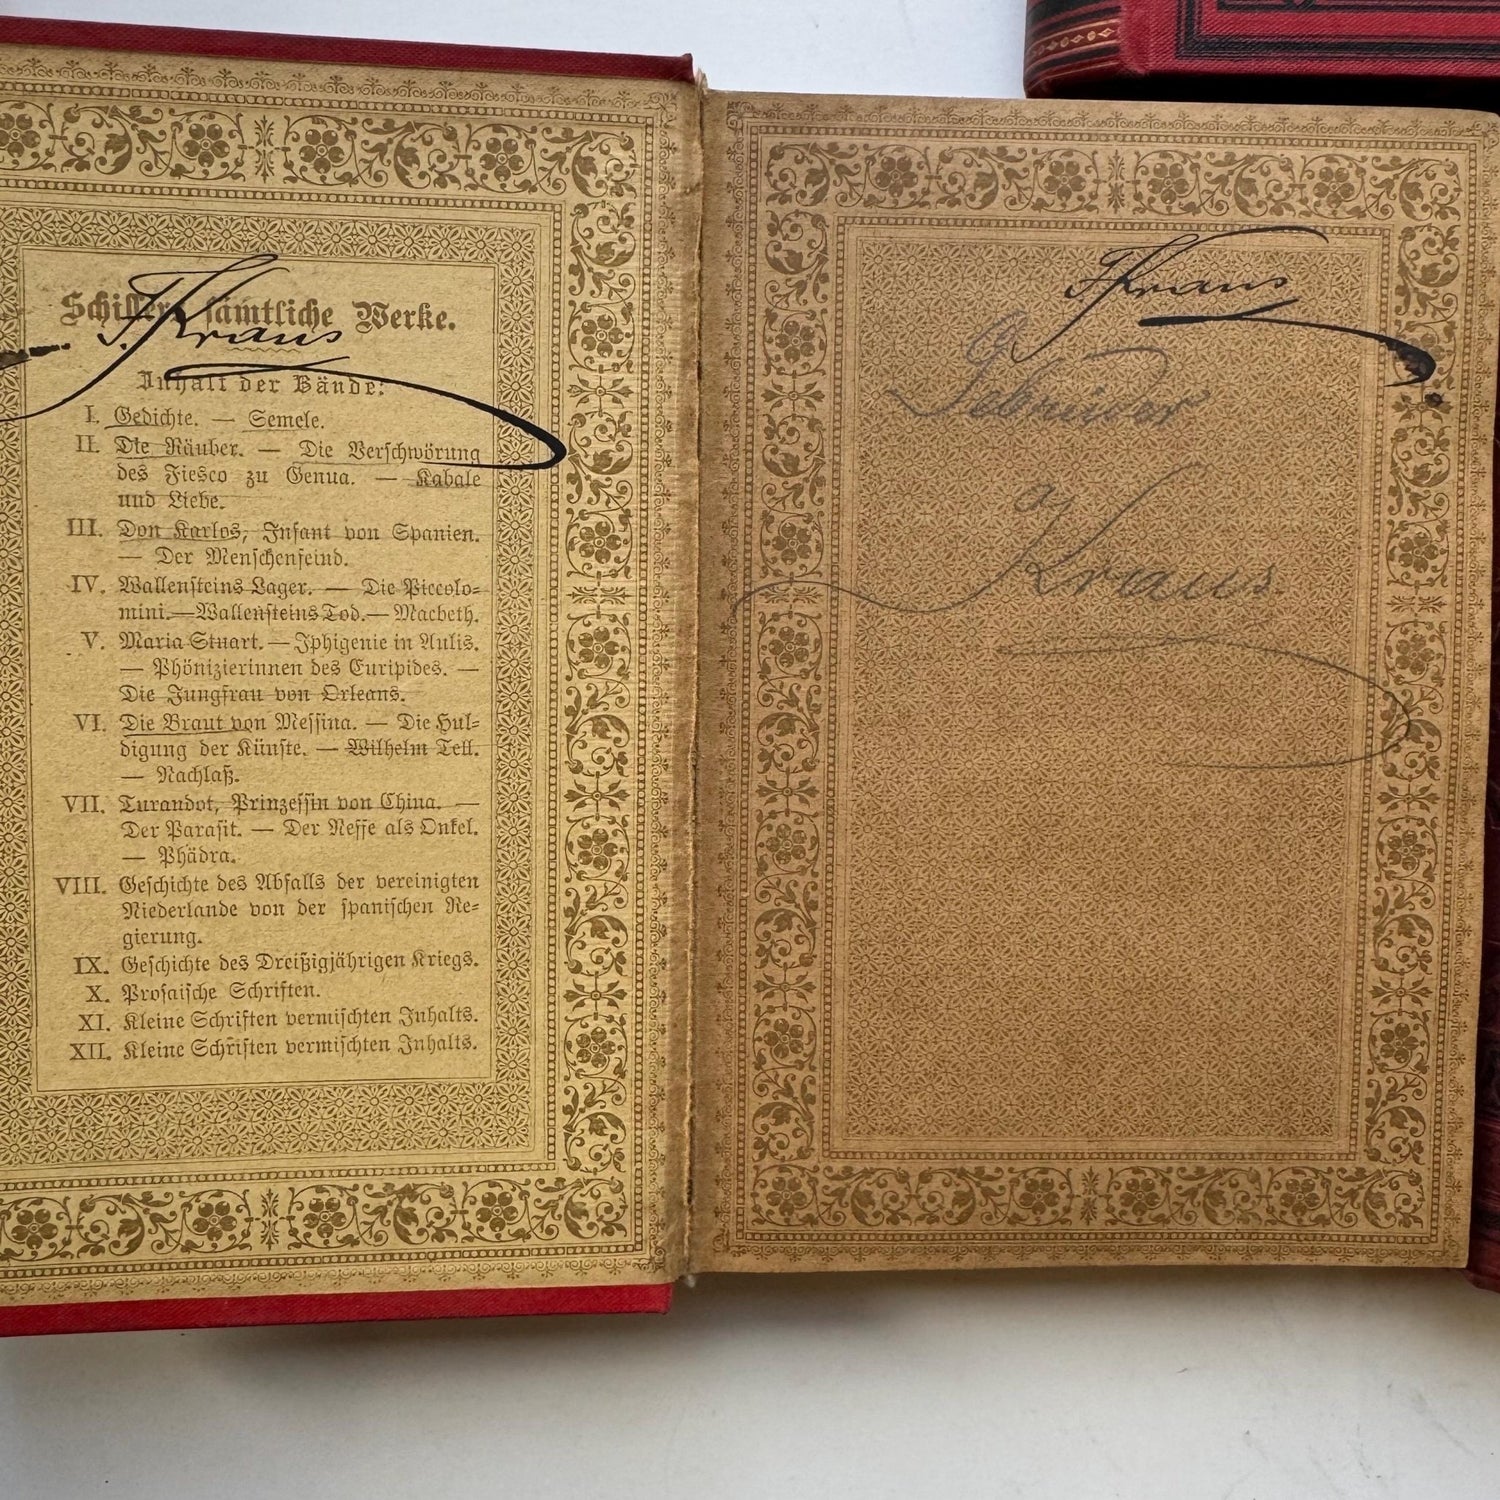 Schillers sämtliche Werke.
J. Kraus
Inhalt der Bände:
I. Gedichte. — Semele.
II. Die Räuber. — Die Verschwörung
des Fiesco zu Genua. — Kabale
und Liebe.
III. Don Karlos, Infant von Spanien.
— Der Menschenfeind.
IV. Wallensteins Lager. — Die Piccolo-
mini. — Wallensteins Tod. — Macbeth.
V. Maria Stuart. — Iphigenie in Aulis.
— Phönizierinnen des Euripides. —
Die Jungfrau von Orleans.
VI. Die Braut von Messina. — Die Hul-
digung der Künste. — Wilhelm Tell.
— Nachlaß.
VII. Turandot, Prinzessin von China. —
Der Parasit. — Der Neffe als Onkel.
— Phädra.
VIII. Geschichte des Abfalls der vereinigten
Niederlande von der spanischen Re-
gierung.
IX. Geschichte des Dreißigjährigen Kriegs.
X. Prosaische Schriften.
XI. Kleine Schriften vermischten Inhalts.
XII. Kleine Schriften vermischten Inhalts.
J Kraus
Kraus.